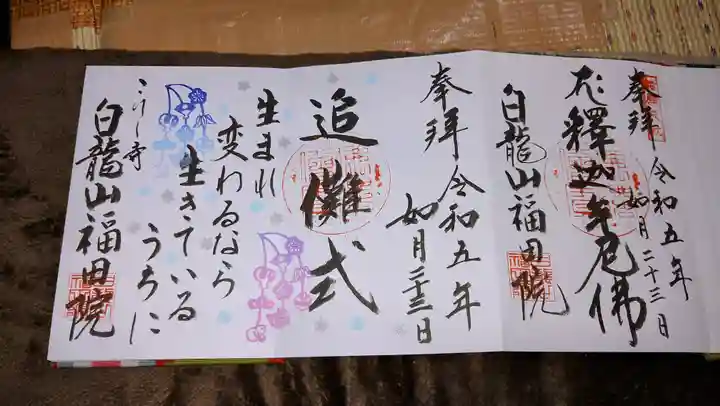 奉拝 令和五年
如月二十三日
南無釋迦牟尼佛
白龍山福田院
奉拝 令和五年
如月二十三日
追儺式
生まれ
変わるなら
生きている
うちに
こけし寺
白龍山福田院